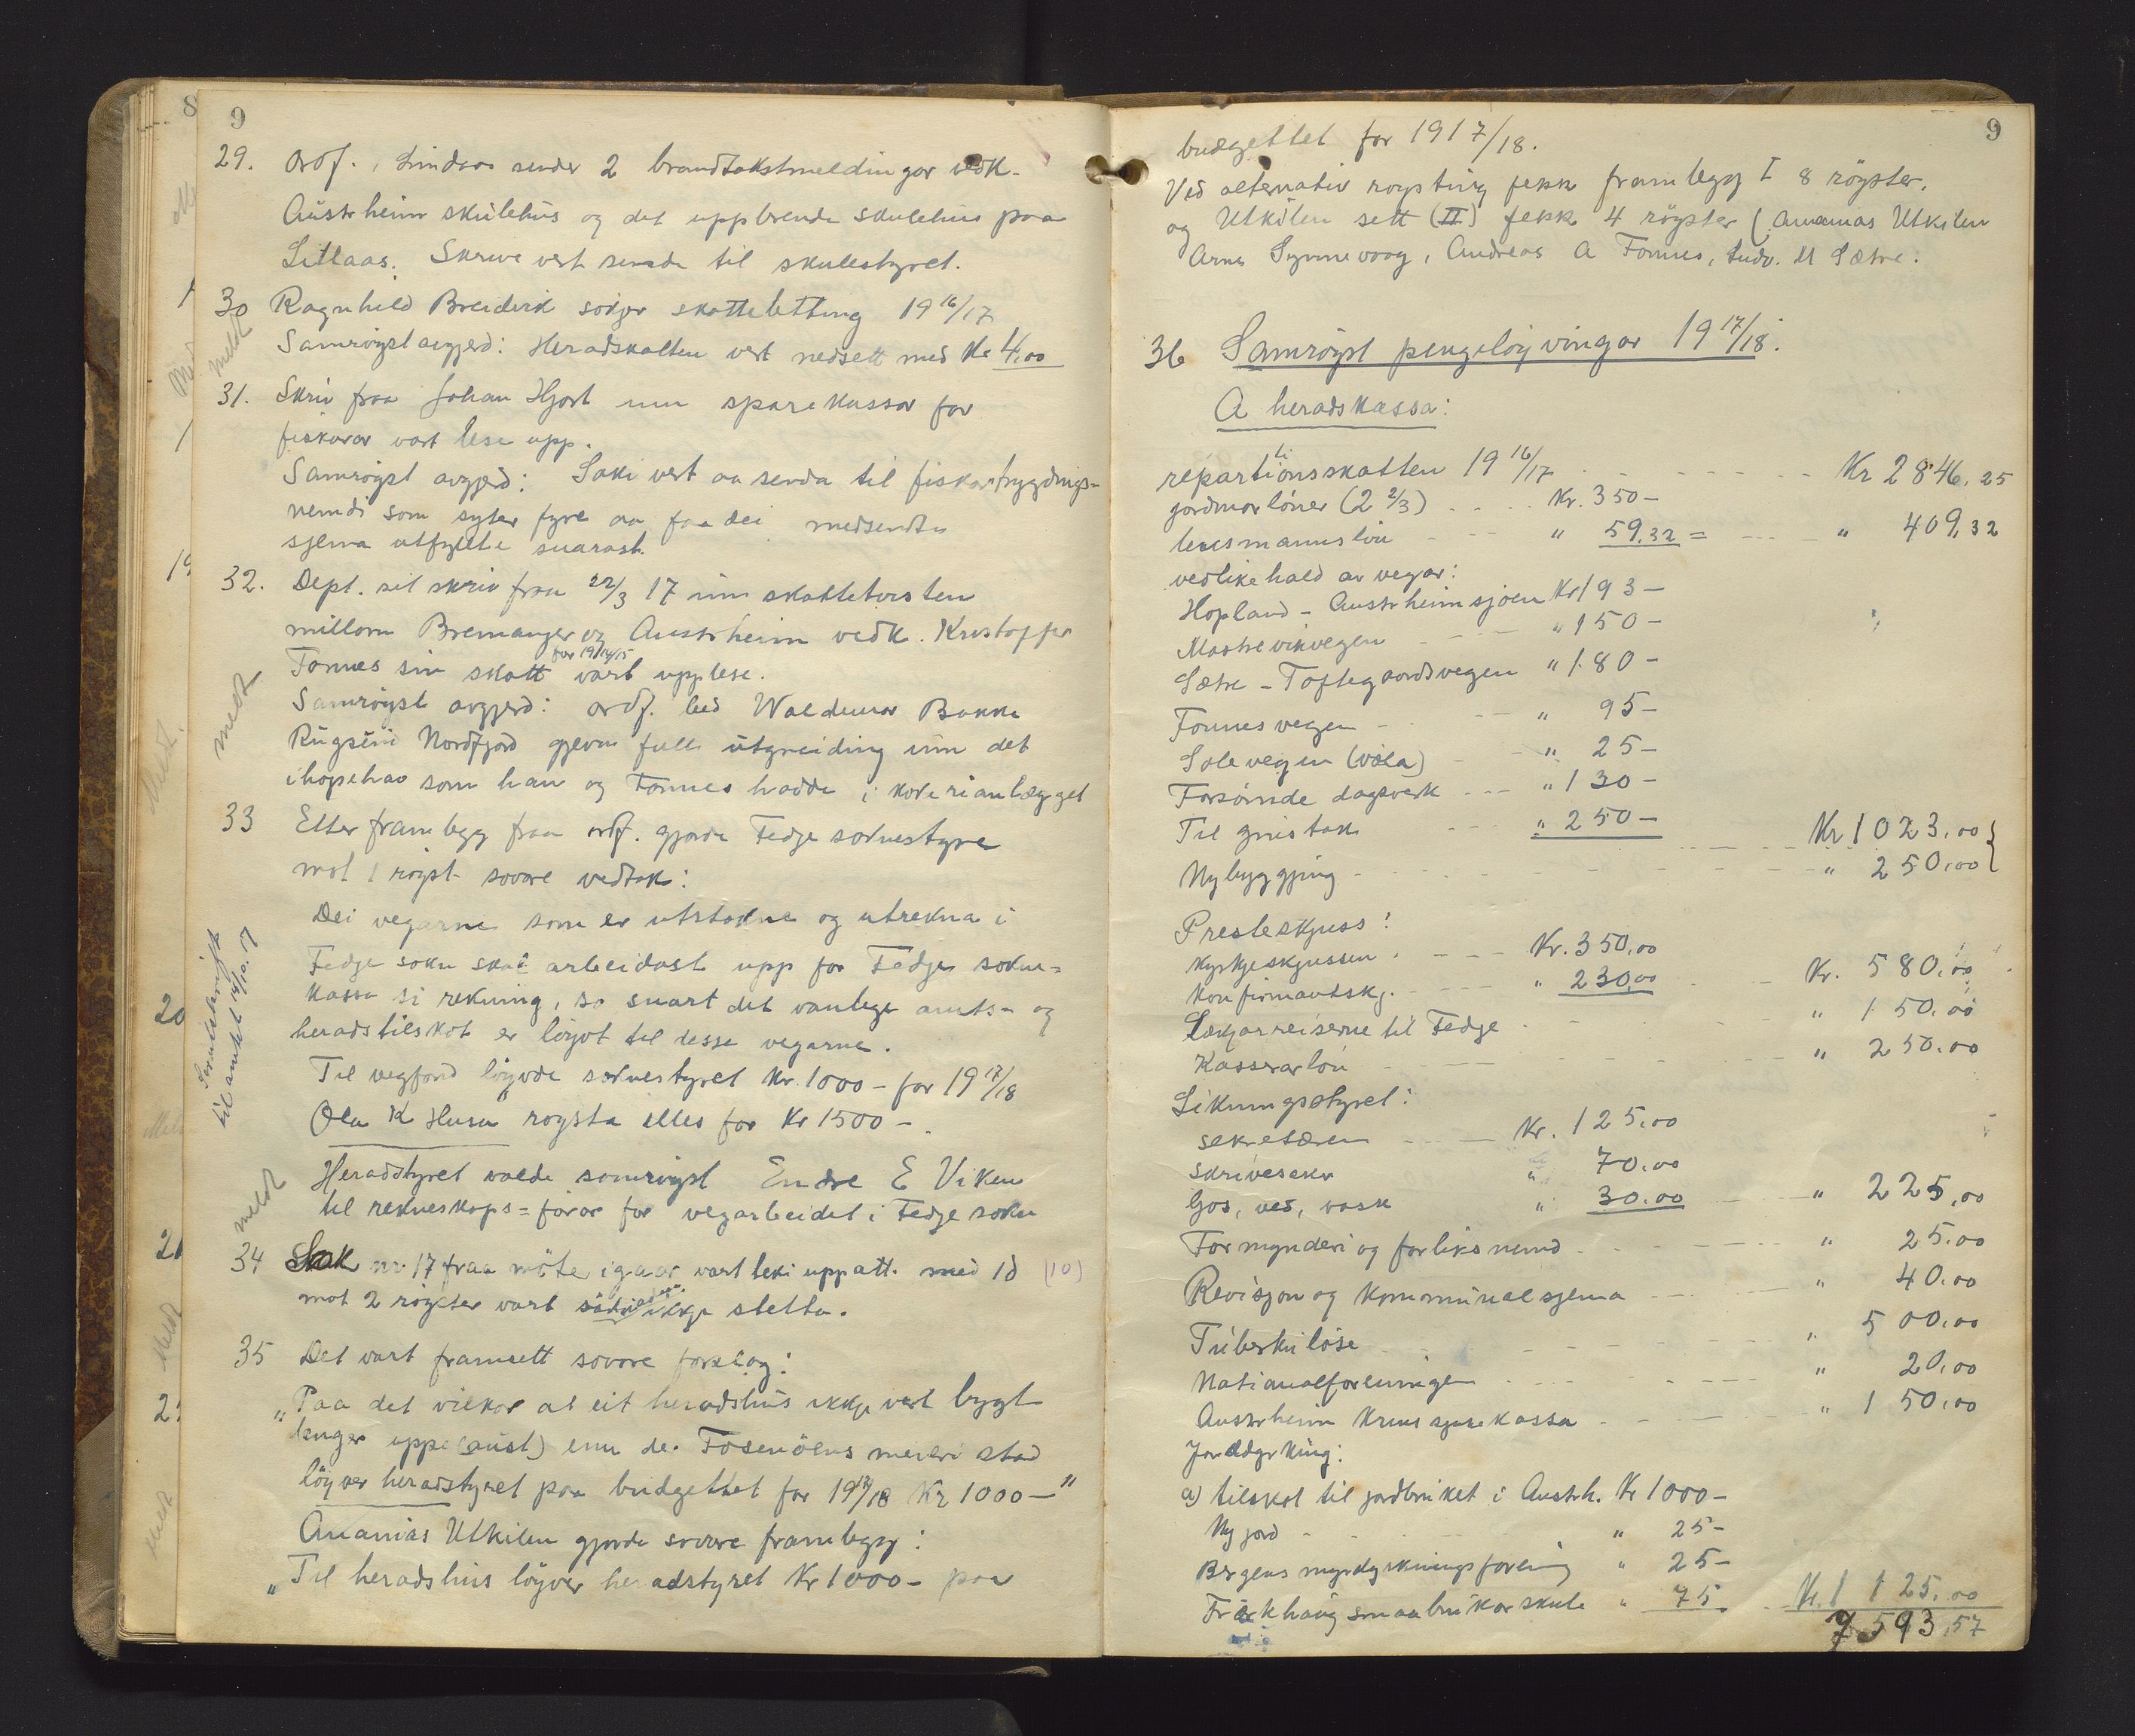 9
29. Ordf. i Lindaas sender 2 brandtakstmeldingar vedk.
Austrheim skulehus og det uppbrende skulehus paa
Litlaas. Skrive vert senda til skulestyret.
30 Ragnhild Breidvik sökjer skatteletting 19 16/17
Samröyst avgjerd: Heradskatten vert nedsett med Kr 4,00
meldt
31. Skriv fraa Johan Hjort um sparekassar for
fiskarar vart lese upp.
Samröyst avgjerd: Saki vert aa senda til fiskartrygdings-
nemdi som syter fyre aa faa dei medsendte
sjema utfyllte snarast.
32. Dept. sit skriv fraa 22/3 17 um skattetvisten
millom Bremanger og Austrheim vedk. Kristoffer
Fonnes sin skatt for 1914/15 vart upplese.
Samröyst avgjerd: ordf. bed Waldemar Bakke
Rugsund Nordfjord gjeva full utgreiding um det
ihopehav som han og Fonnes hadde i
meldt
33 Etter framlegg fraa ordf. gjorde Fedje soknestyre
mot 1 röyst sovore vedtak:
Dei vegarne som er utstakne og utrekna i
Fedje sokn skal arbeidast upp for Fedje sokne-
kassa si rekning, so snart det vanlege amts- og
heradstilskot er löyvt til desse vegarne.
Til vegfond löyvde soknestyret Kr. 1000 - for 19 17/18
Ola K Husa röysta elles for Kr 1500 -.
Særutskrift
til amtet 14/10. 17
Heradstyret valde samröyst Endre E Viken
til rekneskaps=förar for vegarbeidet i Fedje sokn
meldt
34 Sak nr. 17 fraa möte igaar vart teki uppatt. med 10 (10)
mot 2 röyster vart ikkje stetta.
35 Det vart framsett sovore forslag:
„Paa det vilkor at eit heradshus ikkje vert bygt
lenger uppe (aust) enn de. Fosenöens meieri stod
löyver heradstyret paa budgettet for 1917/18 Kr 1000 —"
Ananias Utkilen gjorde sovore framlegg:
„Til heradshus löyver heradstyret Kr 1000 - paa
9
budgettet for 1917/18.
Ved alternativ röysting fekk framlegg I 8 röyster,
og Utkilen sett (II) fekk 4 röyster (Ananias Utkilen
Arne Synnevaag, Andreas A Fonnes, Ludv. M Sætre.
36 Samröyst pengelöyvingar 19 17/18.
A heradskassa:
repartisionsskatten 19 16/17 Kr 2846,25
jordmorlöner (2 2/3) Kr. 350 -
lensmannslön " 59,32 = " 409,32
vedlikehald av vegar:
Hopland - Austrheimsjöen Kr 193 -
Mastrevikvegen " 150 -
Sætre - Toftegaardsvegen " 180 -
Fonnesvegen " 95 -
Solevegen (vøla) " 25 -
Forsömde dagsverk " 130 -
Til grustak " 250 -
Kr 1023,00
Nybyggjing " 250,00
Presteskjuss:
Kyrkjeskjussen Kr. 350,00
Konfirmantskj. " 230,00 Kr. 580,00
Lækjarreiserne til Fedje " 150,00
Kasserarlön " 250,00
Likningsstyret:
sekretæren Kr. 125,00
skrivesaker " 70,00
ljos, ved, vask " 30,00 " 225,00
Formynderi og forliksnemd " 25,00
Revisjon og kommunalsjema " 40,00
Tuberkulöse " 500,00
Nationalforeningen " 20,00
Austrheim krins sjukekassa " 150,00
Jorddyrking:
a) tilskot til jordbruket i Austrh. Kr 1000 -
Ny jord " 25 -
Bergens myrdyrkningsforening " 25 -
Frækhaug smaabrukarskule " 75 Kr. 1125,00
7593,57